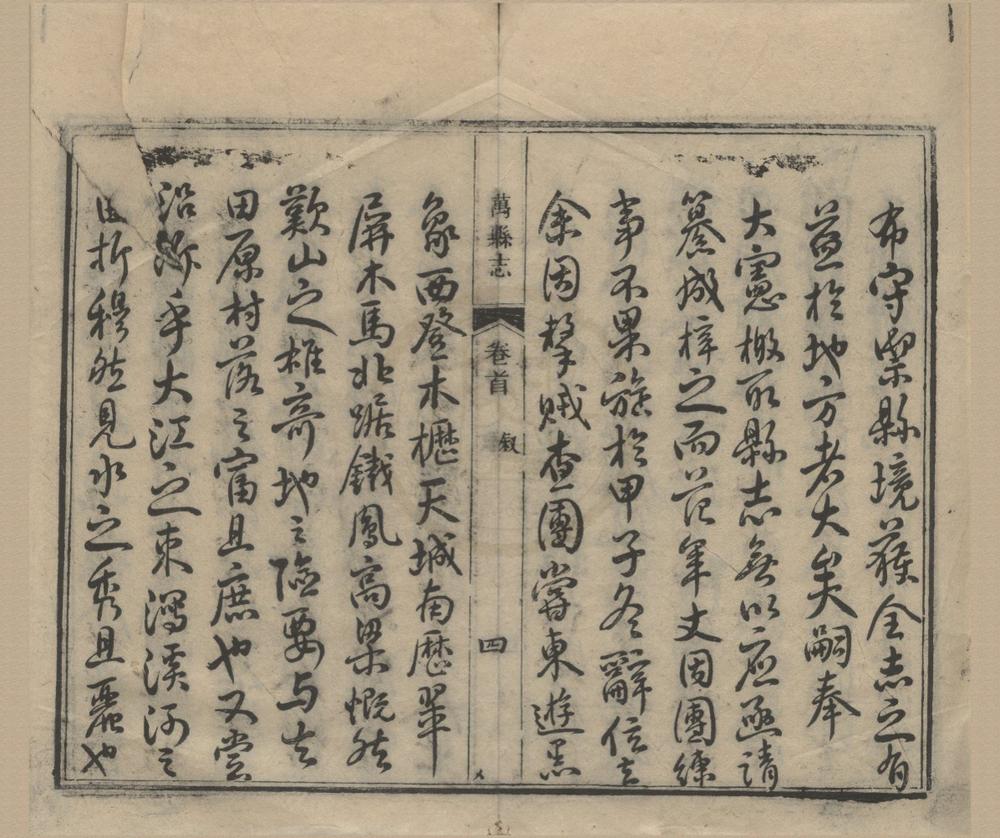 布守禦縣境獲全志之有
益於地方者大矣嗣奉
大憲檄取縣志無以應亟請
纂成梓之而范軍丈因團練
事不果旋於甲子冬辭位去
余因擊賊查團嘗東遊黑
象西登木櫪天城南歷翠
屏木馬北踞鐵鳳高梁慨然
歎山之雄奇地之險要与夫
田原村落之富且庶也又嘗
沿泝乎大江之東瀼溪河之
曲折穆然見水之秀且麗也
萬縣志
卷首
敘
四